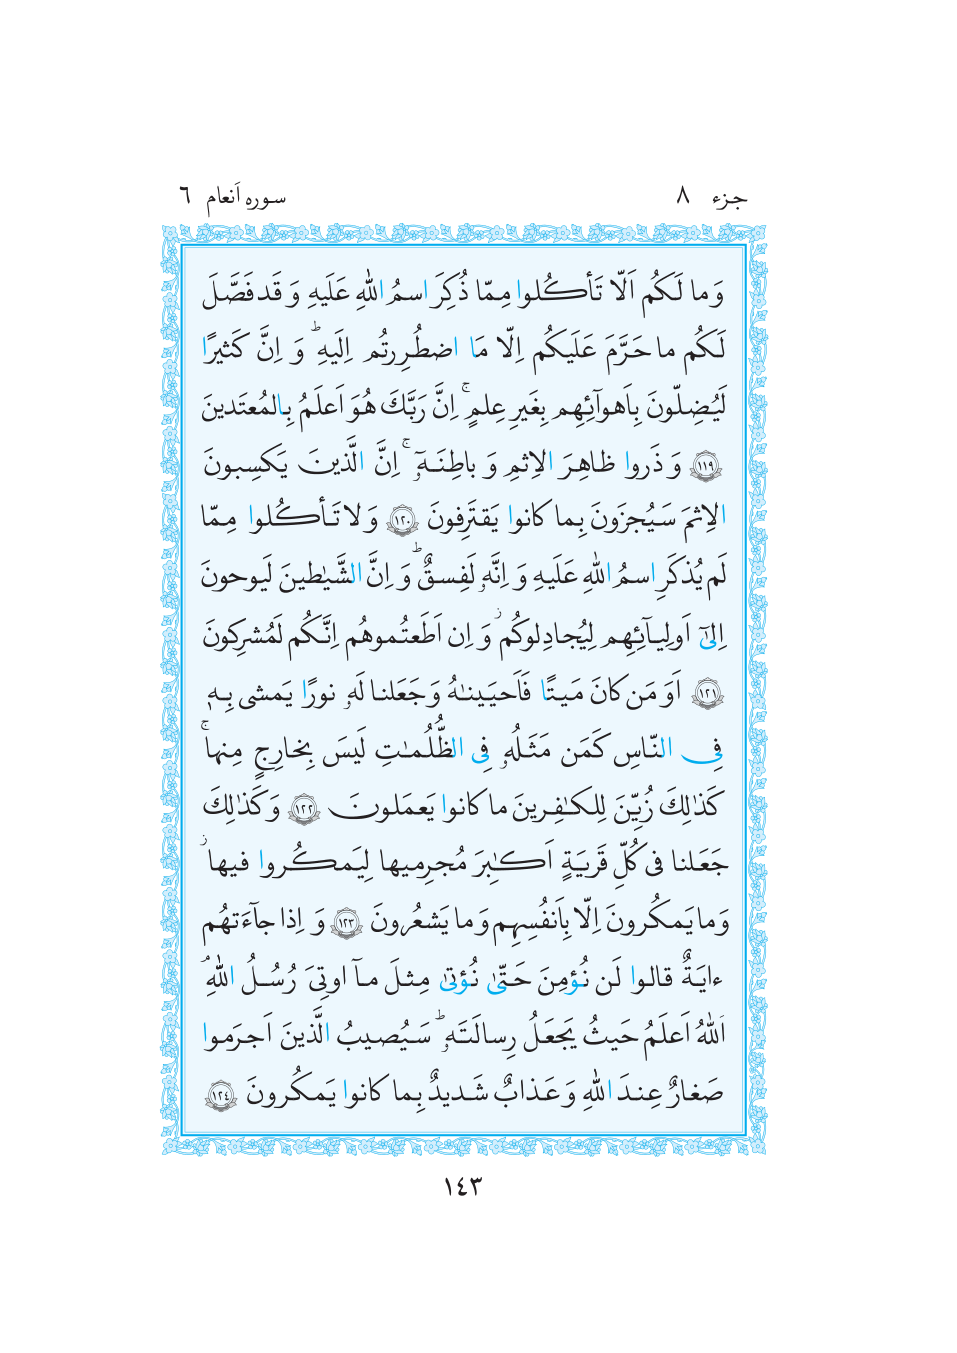 جزء ٨ سوره اَنعام ٦
وَ ما لَـكُم اَلّا تَأكُلوا مِمّا ذُكِرَ اسمُ اللّٰهِ عَلَيهِ وَ قَد فَصَّلَ
لَـكُم ما حَرَّمَ عَلَيكُم اِلّا مَا اضطُرِرتُم اِلَيهِ ۗ وَ اِنَّ كَثيرًا
لَيُضِلّونَ بِاَهوآئِهِم بِغَيرِ عِلمٍ ۚ اِنَّ رَبَّكَ هُوَ اَعلَمُ بِالمُعتَدينَ
﴿١١٩﴾ وَ ذَروا ظاهِرَ الاِثمِ وَ باطِنَهٓۥ ۚ اِنَّ الَّذينَ يَكسِبونَ
الاِثمَ سَيُجزَونَ بِما كانوا يَقتَرِفونَ ﴿١٢٠﴾ وَ لا تَأكُلوا مِمّا
لَم يُذكَرِ اسمُ اللّٰهِ عَلَيهِ وَ اِنَّهۥ لَفِسقٌ ۗ وَ اِنَّ الشَّيٰطينَ لَيوحونَ
اِلىٰٓ اَولِيآئِهِم لِيُجادِلوكُم ۖ وَ اِن اَطَعتُموهُم اِنَّكُم لَمُشرِكونَ
﴿١٢١﴾ اَوَ مَن كانَ مَيتًا فَاَحيَينٰهُ وَ جَعَلنا لَهۥ نورًا يَمشى بِهٖ
فِى النّاسِ كَمَن مَثَلُهۥ فِى الظُّلُمٰتِ لَيسَ بِخارِجٍ مِنها ۚ
كَذٰلِكَ زُيِّنَ لِلكٰفِرينَ ما كانوا يَعمَلونَ ﴿١٢٢﴾ وَ كَذٰلِكَ
جَعَلنا فى كُلِّ قَريَةٍ اَكٰبِرَ مُجرِميها لِيَمكُروا فيها ۖ
وَ ما يَمكُرونَ اِلّا بِاَنفُسِهِم وَ ما يَشعُرونَ ﴿١٢٣﴾ وَ اِذا جآءَتهُم
ءايَةٌ قالوا لَن نُؤمِنَ حَتّىٰ نُؤتىٰ مِثلَ مآ اوتِىَ رُسُلُ اللّٰهِ ۘ
اَللّٰهُ اَعلَمُ حَيثُ يَجعَلُ رِسالَتَهۥ ۗ سَيُصيبُ الَّذينَ اَجرَموا
صَغارٌ عِندَ اللّٰهِ وَ عَذابٌ شَديدٌ بِما كانوا يَمكُرونَ ﴿١٢٤﴾
١٤٣